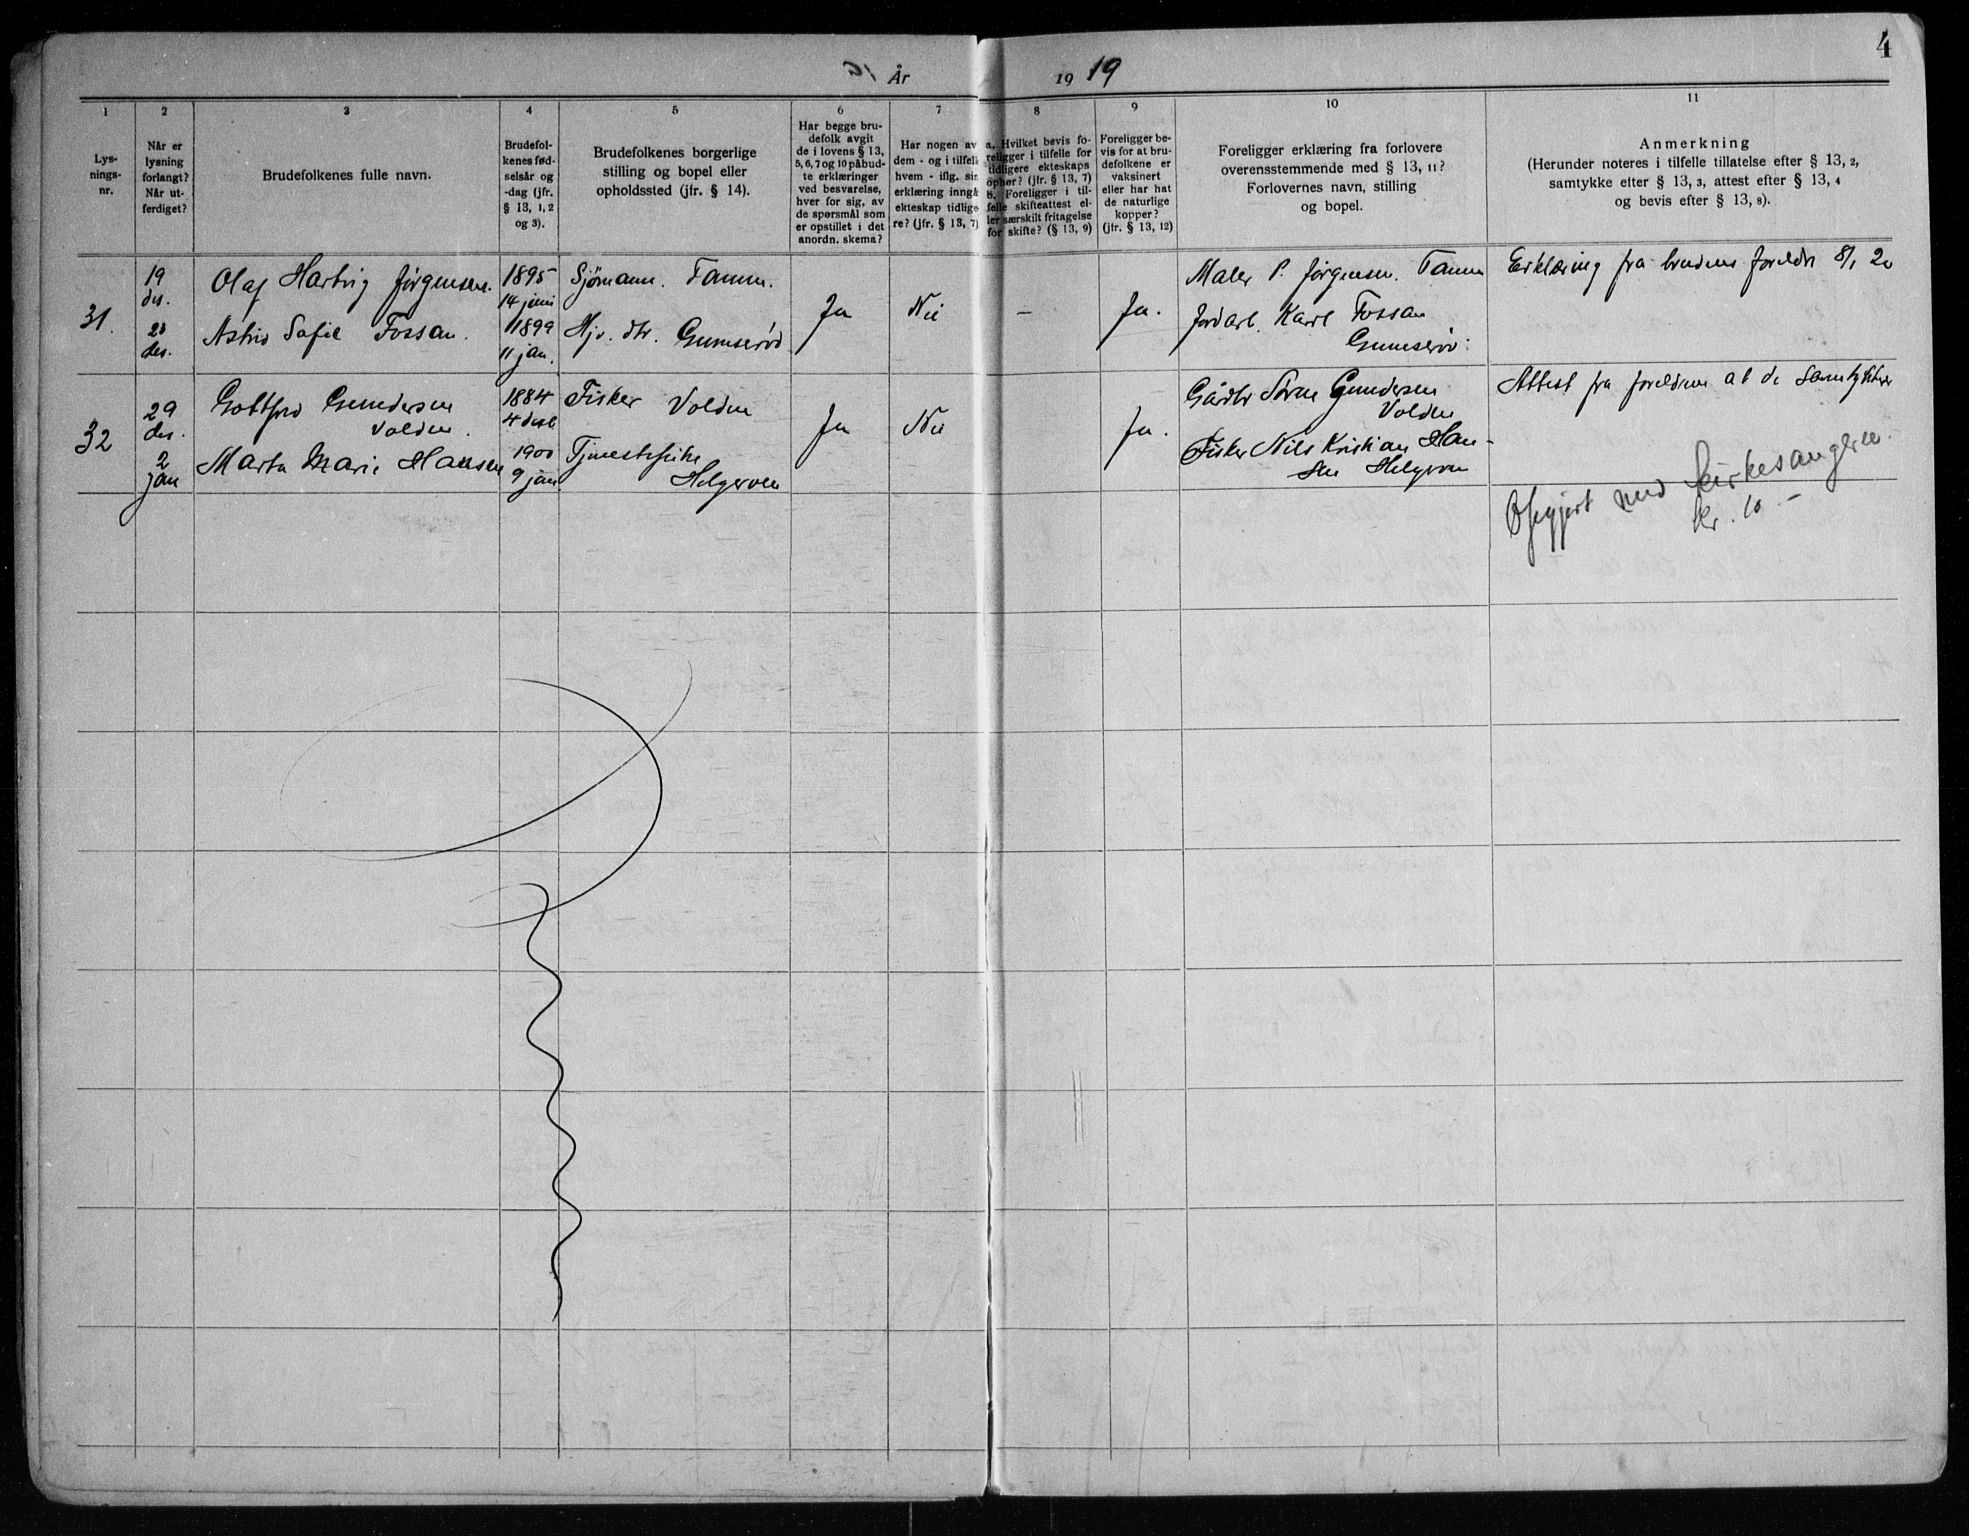 4
År 19 19
1
Lys-
nings-
nr.
2
Når er
lysning
forlangt?
Når ut-
ferdiget?
3
Brudefolkenes fulle navn.
4
Brudefol-
kenes fød-
selsår og
-dag (jfr.
§ 13, 1, 2
og 3).
5
Brudefolkenes borgerlige
stilling og bopel eller
opholdssted (jfr. § 14).
6
Har begge bru-
defolk avgit
de i lovens § 13,
5, 6, 7 og 10 påbud-
te erklæringer
ved besvarelse,
hver for sig, av
de spørsmål som
er opstillet i det
anordn. skema?
7
Har nogen av
dem - og i tilfelle
hvem - iflg. sin
erklæring inngå
ekteskap tidlige
re? (jfr. § 13, 7)
8
a. Hvilket bevis fo-
religger i tilfelle for
tidligere ekteskaps
ophør? (jfr. § 13, 7)
b. Foreligger i til-
felle skifteattest el-
ler særskilt fritagelse
for skifte? (§ 13, 9)
9
Foreligger be-
vis for at bru-
defolkene er
vaksinert
eller har hat
de naturlige
kopper?
(jfr. § 13, 12)
10
Foreligger erklæring fra forlovere
overensstemmende med § 13, 11?
Forlovernes navn, stilling
og bopel.
11
Anmerkning
(Herunder noteres i tilfelle tillatelse efter § 13, 2,
samtykke efter § 13, 3, attest efter § 13, 4
og bevis efter § 13, 8).
31.
19
des.
Olaf Hartvig Jørgensen.
1895
14 juni
Sjömann. Famm.
Ja
Nei
–
Ja.
Maler P. Jørgensen. Famm
Erklæring fra brudens foreldre 8/1 20
des.
Astrid Sofie Fossan.
1899
11 jan.
Hjv. dtr. Gumserød
Jordarb. Karl Fossan
Gumserød.
32
29
des.
Gottfred Gundersen
Volden.
1884
4 desb.
Fisker Volden
Ja
Nei
Ja.
Gårdbr Søren Gundersen
Volden
Attest fra foreldrene at de samtykker
2
jan
Marta Marie Hansen
1900
9 jan.
Tjenestepike
Helgeroen
Fisker Nils Kristian Han-
sen Helgeroen
Opgjort med kirkesangeren.
kr. 10 –